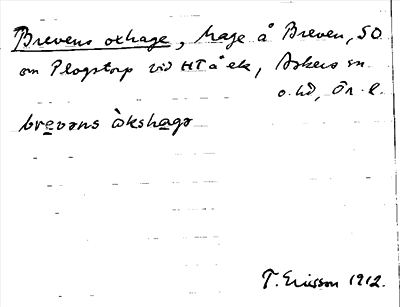 Brevens oxhage, hage å Breven, SO
om Plogstorp vid HTåek, Askers sn
o. hd, Ör. l.
brevəns òkshagə
T. Ericsson 1912.